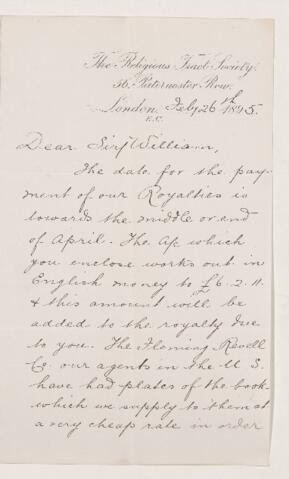 The Religious Tract Society,
56, Paternoster Row,
London, Feby. 26th 1895.
E.C.
Dear Sir William,
The date for the pay-
ment of our Royalties is
towards the middle or end
of April. The A/c which
you enclose works out in
English money to £6. 2. 11.
& this amount will be
added to the royalty due
to you. The Fleming Revell
Co. our agents in the U S.
have had plates of the book
which we supply to them at
a very cheap rate in order